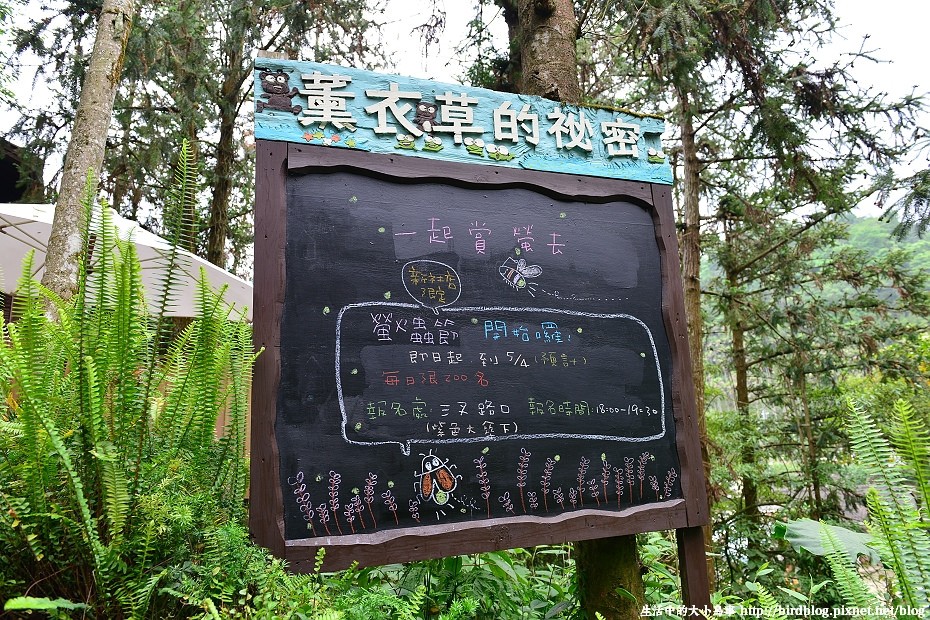 薰衣草的祕密
一起賞螢去
新社店
限定
螢火蟲節 開始囉!
即日起 到 5/4 (預計)
每日限 200 名
報名處:三叉路口 報名時間:18:00-19:30
(紫色大傘下)
生活中的大小為事 http://birdblog.pixnet.net/blog